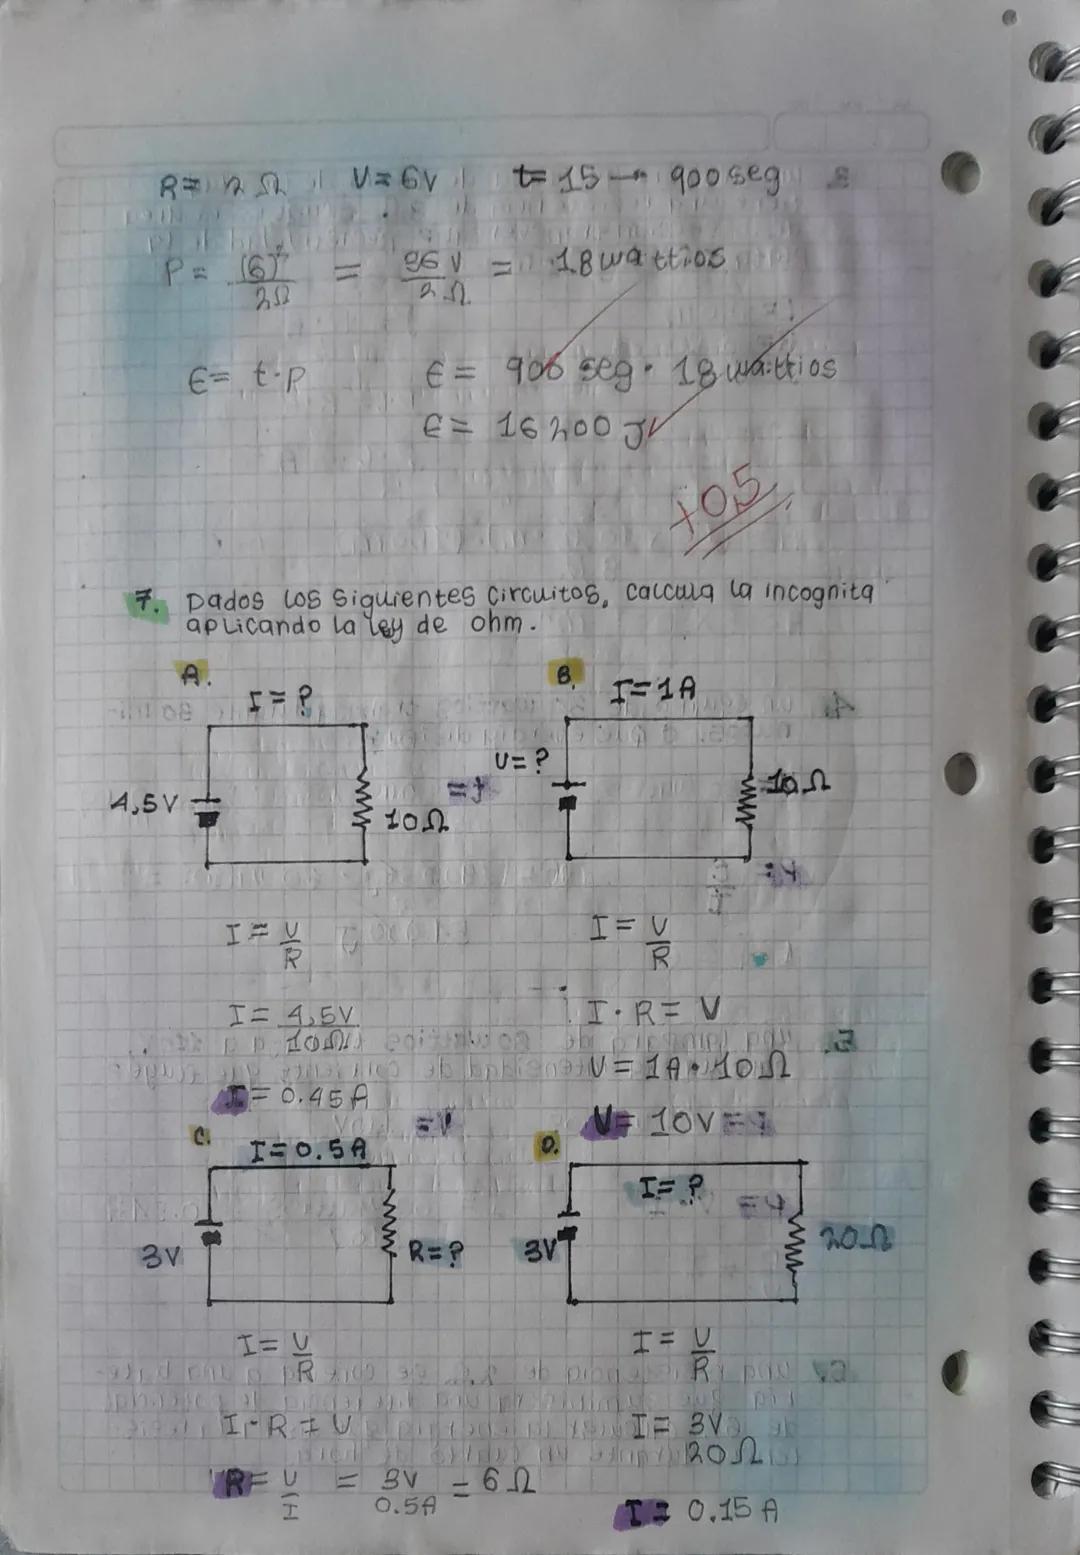 R= 2 Ω V= 6V t= 15 → 900 seg
P = (6)² / 2Ω = 36 V / 2 Ω = 18 wattios
E= t·P E= 900 seg · 18 wattios
E= 16200 J
+0.5
7. Dados los siguientes circuitos, calcula la incognita
aplicando la ley de ohm.
A.
I= ?
4,5V
10Ω
B.
I= 1A
V= ?
10Ω
I= V/R
I= 4,5V / 10Ω
I= 0.45A
I= V/R
I·R= V
V= 1A · 10Ω
V= 10V
C.
I= 0.5A
3V
R= ?
D.
I= ?
3V
20Ω
I= V/R
I·R= V
R= V/I = 3V / 0.5A = 6Ω
I= V/R
I= 3V / 20Ω
I= 0.15A